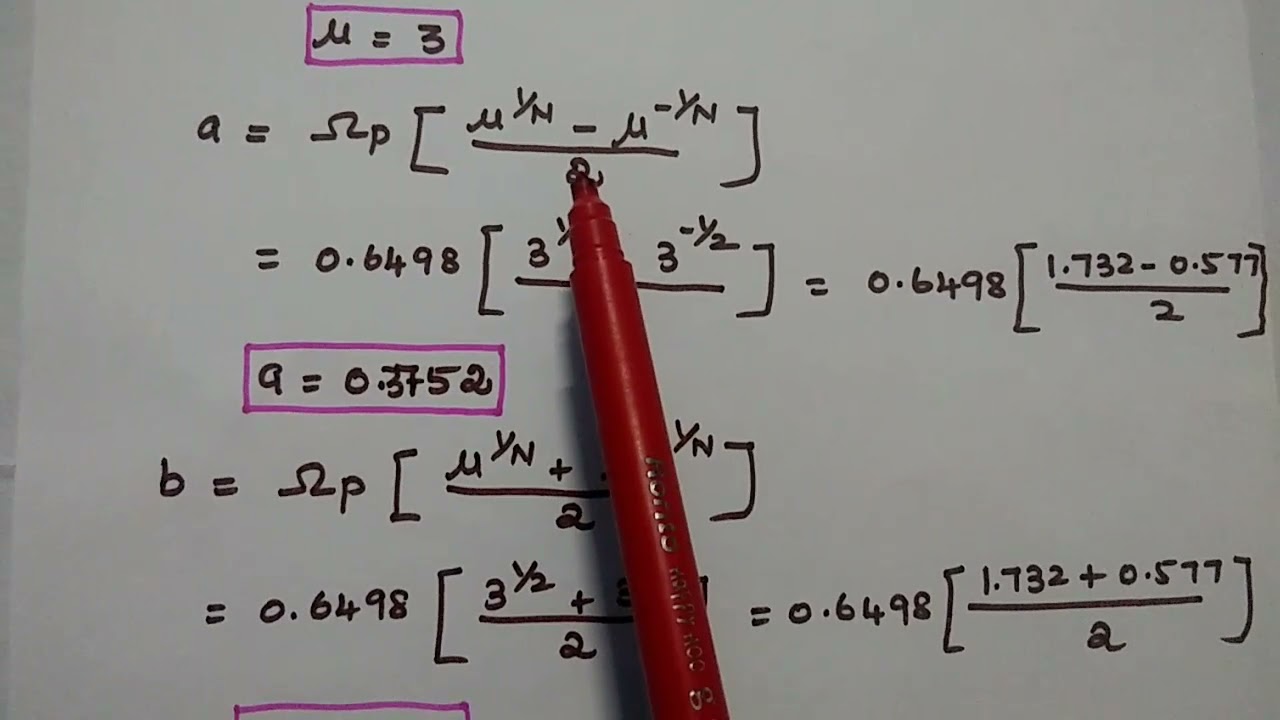 μ = 3
a = Ωp [ μ^1/N - μ^-1/N / 2 ]
= 0.6498 [ 3^1/ 3^-1/2 ] = 0.6498 [ 1.732 - 0.577 / 2 ]
a = 0.3752
b = Ωp [ μ^1/N + ^1/N / 2 ]
= 0.6498 [ 3^1/2 + 3 / 2 ] = 0.6498 [ 1.732 + 0.577 / 2 ]